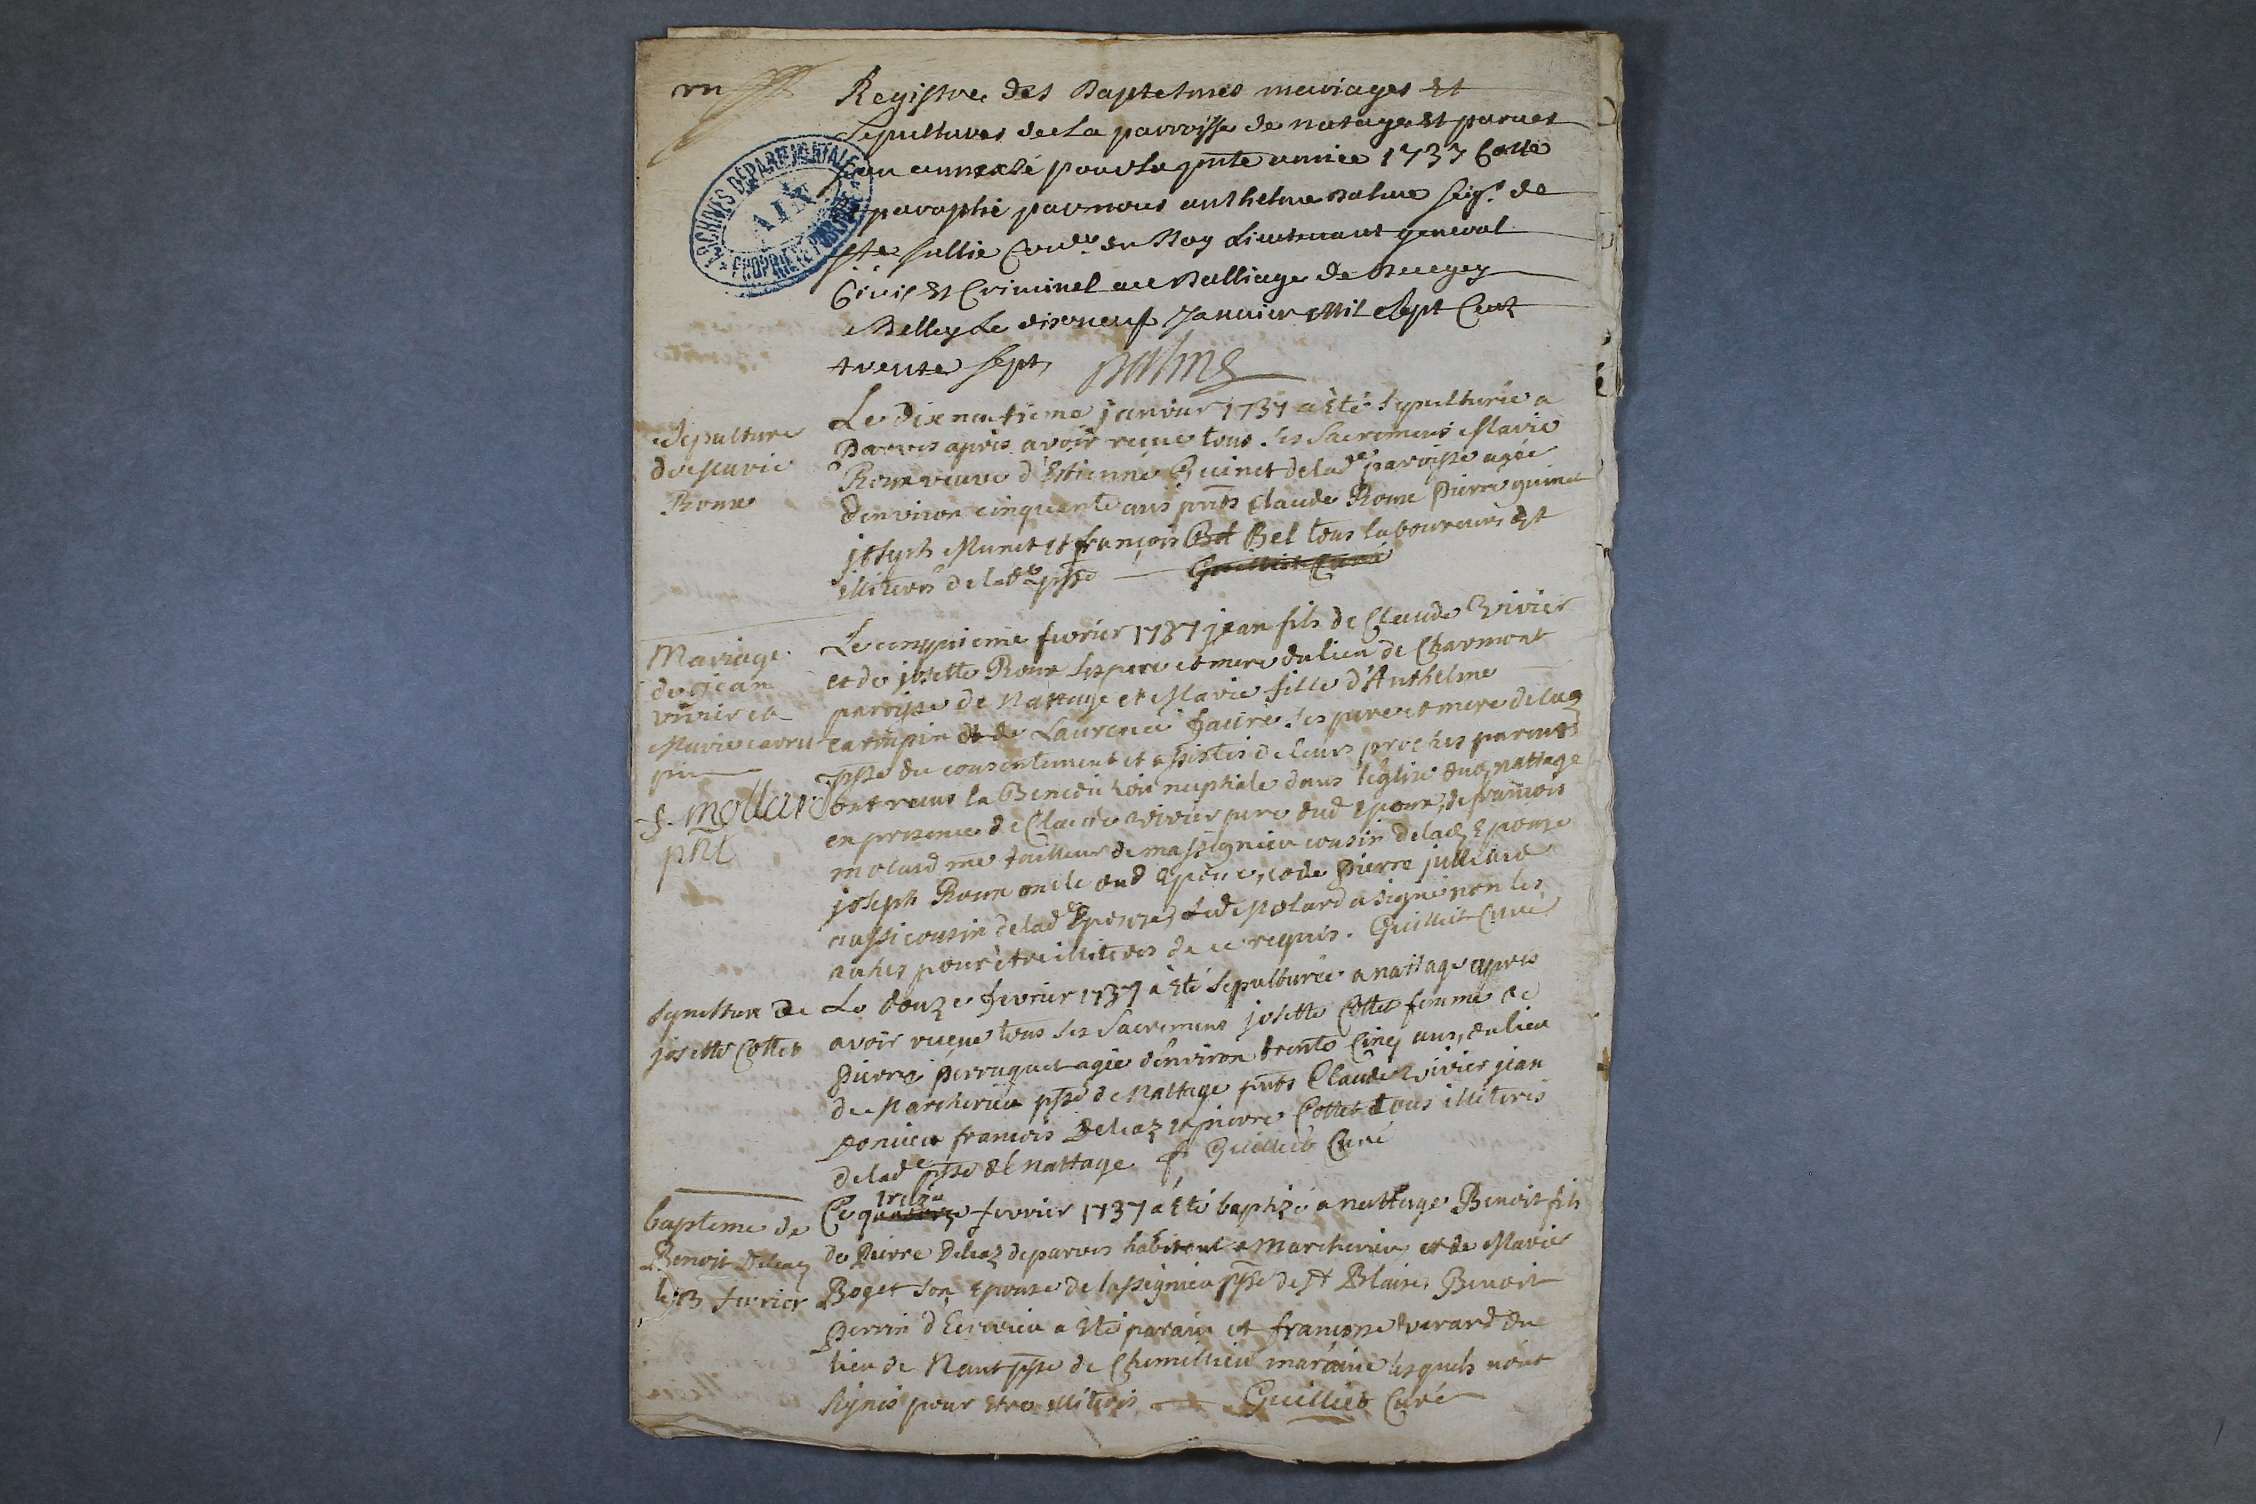 vn
Registre des Baptesmes mariages et
sepultures de la parroisse de natage et parves
son annexe pour la pnte année 1737 Cotté
paraphé par nous anthelme Balme seigr de
Ste Jullie Conser du Roy Lieutenant general
Civil et Criminel au Balliage de Beugey
a Belley Le dixneuf Janvier Mil Sept Cent
trente sept Balme
ARCHIVES DÉPARTEMENTALES
AIN
PROPRIÉTÉ PUBLIQUE
Sepulture
de Marie
Roux
Le dix neufieme janvier 1737 a Eté sepulturée a
Parves apres avoir recue tous ses Sacremens Marie
Roux veuve d'Estienne Guinet de lade paroisse agée
d'environ cinquante ans pnts Claude Roux Pierre guinet
joseph Munet et françois Bel tous laboureurs et
illiterés de lade psse Guilliet Curé
Mariage
de jean
vivier et
Marie carru
pin
f. mollard
pnt
Le cinquieme fevrier 1737 jean fils de Claude Vivier
et de josette Roux ses pere et mere du lieu de Charmont
parroisse de Nattage et Marie fille d'Anthelme
carrupin et de Laurence faure ses pere et mere de lad
psse du consentement et assistés de leurs proches parents
ont receus la Benediction nuptiale dans l'églize dud nattage
en presence de Claude vivier pere dud Epoux, de françois
molard me tailleur de massignieu cousin de lad Epouze
joseph Roux oncle dud Epoux, et de Pierre julliard
aussi cousin de lade Epouze, Led Molard a signé non les
autres pour être illiterés de ce requis. Guilliet Curé
sepulture de
josette Cottet
Le douze fevrier 1737 a Eté sepulturée a nattage apres
avoir receue tous ses Sacremens josette Cottet femme de
Pierre perruquet agée d'environ trente Cinq ans, du lieu
de Marcherieu psse de Nattage pnts Claude vivier jean
françois Deleaz et pierre Cottet tous illiterés
de lade psse de nattage f Guilliet Curé
bapteme de
Benoit Deleaz
le 13 fevrier
treize
Ce quatorze fevrier 1737 a Eté baptizé a nattage Benoit fils
de Pierre Deleaz de parves habitant a Marcherieu et de Marie
Boget son Epouze de lassignieu psse de St Blaise, Benoit
Perrin d'Ecrivieu a Eté parain et françoise verard du
lieu de Nant psse de Chemillieu maraine lesquels n'ont
signés pour etre illiterés Guilliet Curé